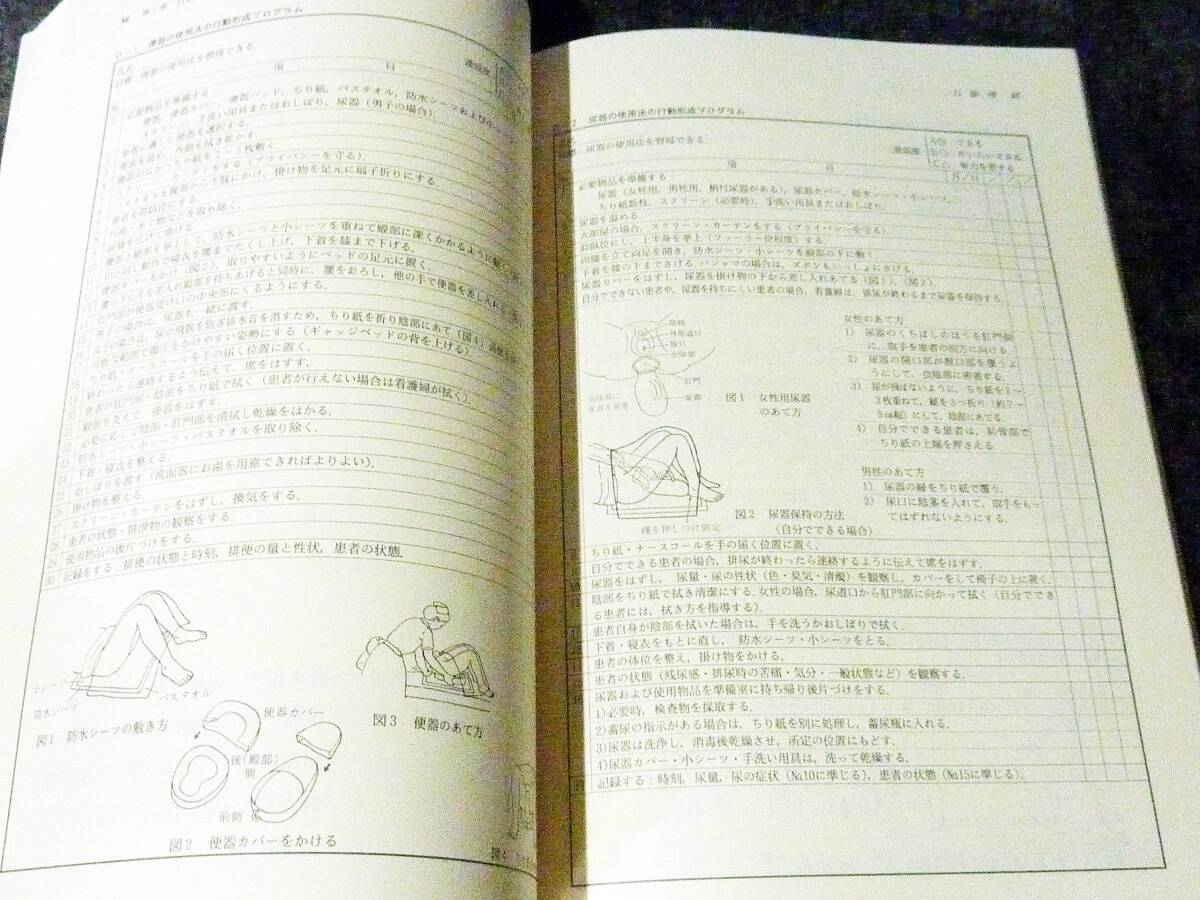 D－1 便器の使用法の行動形成プログラム
氏名
目標 便器の使用法を習得できる.
項 目
達成度
必要物品を準備する
便器, 便器カバー, 便器パッド, ちり紙, バスタオル, 防水シーツおよび小シーツ
スクリーン, 手洗い用具またはおしぼり, 尿器(男子の場合).
患者に適した便器を選択する.
便器を温め, 外側を拭き乾かす.
カーテンをする(プライバシーを守る)
バスタオルを腹部から下肢にかけ, 掛け物を足元に扇子折りにする
患者を仰臥位にする.
両膝を立てて開ける
防水シーツと小シーツを重ねて殿部に深くかかるように敷く
10と同じ動作で寝衣を腰までたくし上げ, 下着を膝まで下げる.
便器カバーをかけ(図2), 取りやすいようにベッドの足元に置く.
腰の下に手を差入れ殿部を持ちあげると同時に, 腰をおろし, 他の手で便器を差し入れる
肛門部が便器受け口の中央部にくるようにする.
男子の場合は, 尿器も一緒に渡す.
女子の場合は, 尿の飛散を防ぎ排水音を消すため, ちり紙を折り陰部にあて(図4)
可能な範囲で腹圧をかけやすい姿勢にする(ギャッジベッドの背を上げる).
ちり紙・ナースコールを手の届く位置に置く.
終わったら連絡するよう伝えて, 席をはずす.
患者の肛門部・陰部をちり紙で拭く(患者が行えない場合は看護婦が拭く).
殿部を支えて, 便器をはずす.
必要に応じて陰部・肛門部を清拭し乾燥をはかる.
23 防水シーツ・小シーツ・バスタオルを取り除く.
24 下着・寝衣を整える.
25 おしぼりを渡す(洗面器にお湯を用意できればよりよい).
26 掛け物を整える.
27 スクリーン・カーテンをはずし, 換気をする.
28 患者の状態・排泄物の観察をする.
29 使用物品の後片づけをする.
30 記録をする：排便の状態と時刻, 排便の量と性状, 患者の状態.
小シーツ
バスタオル
防水シーツ
図1 防水シーツの敷き方
便器カバー
後(殿部)側
前側
図2 便器カバーをかける
図3 便器のあて方
図4
2 尿器の使用法の行動形成プログラム
尿器の使用法を習得できる.
達成度
A◎ できる
B○ だいたいできる
C△ 努力を要する
項 目
月／日
必要物品を準備する：
尿器(女性用, 男性用, 柄付尿器がある), 尿器カバー, 防水シーツ・小シーツ,
ちり紙数枚, スクリーン(必要時), 手洗い用具またはおしぼり.
尿器を温める.
大部屋の場合, スクリーン・カーテンをする(プライバシーを守る)
仰臥位にし, 上半身を挙上(ファーラー位程度)する.
両膝を立て両足を開き, 防水シーツ・小シーツを殿部の下に敷く
下着を膝の下までさげる. パジャマの場合は, ズボンもいっしょにさげる.
尿器カバーをはずし, 尿器を掛け物の下から差し入れあてる(図1), (図2).
自分でできない患者や, 尿器を持ちにくい患者の場合, 看護婦は, 排尿が終わるまで尿器を保持する.
陰核
外尿道口
腟口
会陰部
肛門
会陰部に
尿器を密着
尿器
図1 女性用尿器
のあて方
女性のあて方
1) 尿器のくちばしのほうを肛門側
に, 取手を患者の前方に向ける.
2) 尿器の開口部が腟口部を覆うよ
うにして, 会陰部に密着する.
3) 尿が飛ばないように, ちり紙を2～
3枚重ねて, 縦を3つ折り(約7～
9㎝幅)にして, 陰部にあてる.
4) 自分でできる患者は, 恥骨部で
ちり紙の上端を押さえる.
男性のあて方
1) 尿器の縁をちり紙で覆う.
2) 尿口に陰茎を入れて, 取手をもっ
てはずれないようにする.
図2 尿器保持の方法
(自分でできる場合)
ちり紙・ナースコールを手の届く位置に置く.
自分でできる患者の場合, 排尿が終わったら連絡するように伝えて席をはずす.
尿器をはずし, 尿量・尿の性状(色・臭気・清濁)を観察し, カバーをして椅子の上に置く.
陰部をちり紙で拭き清潔にする. 女性の場合, 尿道口から肛門部に向かって拭く(自分ででき
る患者には, 拭き方を指導する).
患者自身が陰部を拭いた場合は, 手を洗うかおしぼりで拭く.
下着・寝衣をもとに直し, 防水シーツ・小シーツをとる.
患者の体位を整え, 掛け物をかける.
患者の状態(残尿感・排尿時の苦痛・気分・一般状態など)を観察する.
尿器および使用物品を準備室に持ち帰り後片づけをする.
1)必要時, 検査物を採取する.
2)蓄尿の指示がある場合は, ちり紙を別に処理し, 蓄尿瓶に入れる.
3)尿器は洗浄し, 消毒後乾燥させ, 所定の位置にもどす.
4)尿器カバー・小シーツ・手洗い用具は, 洗って乾燥する.
記録する：時刻, 尿量, 尿の症状(№10に準じる), 患者の状態(№15に準じる).